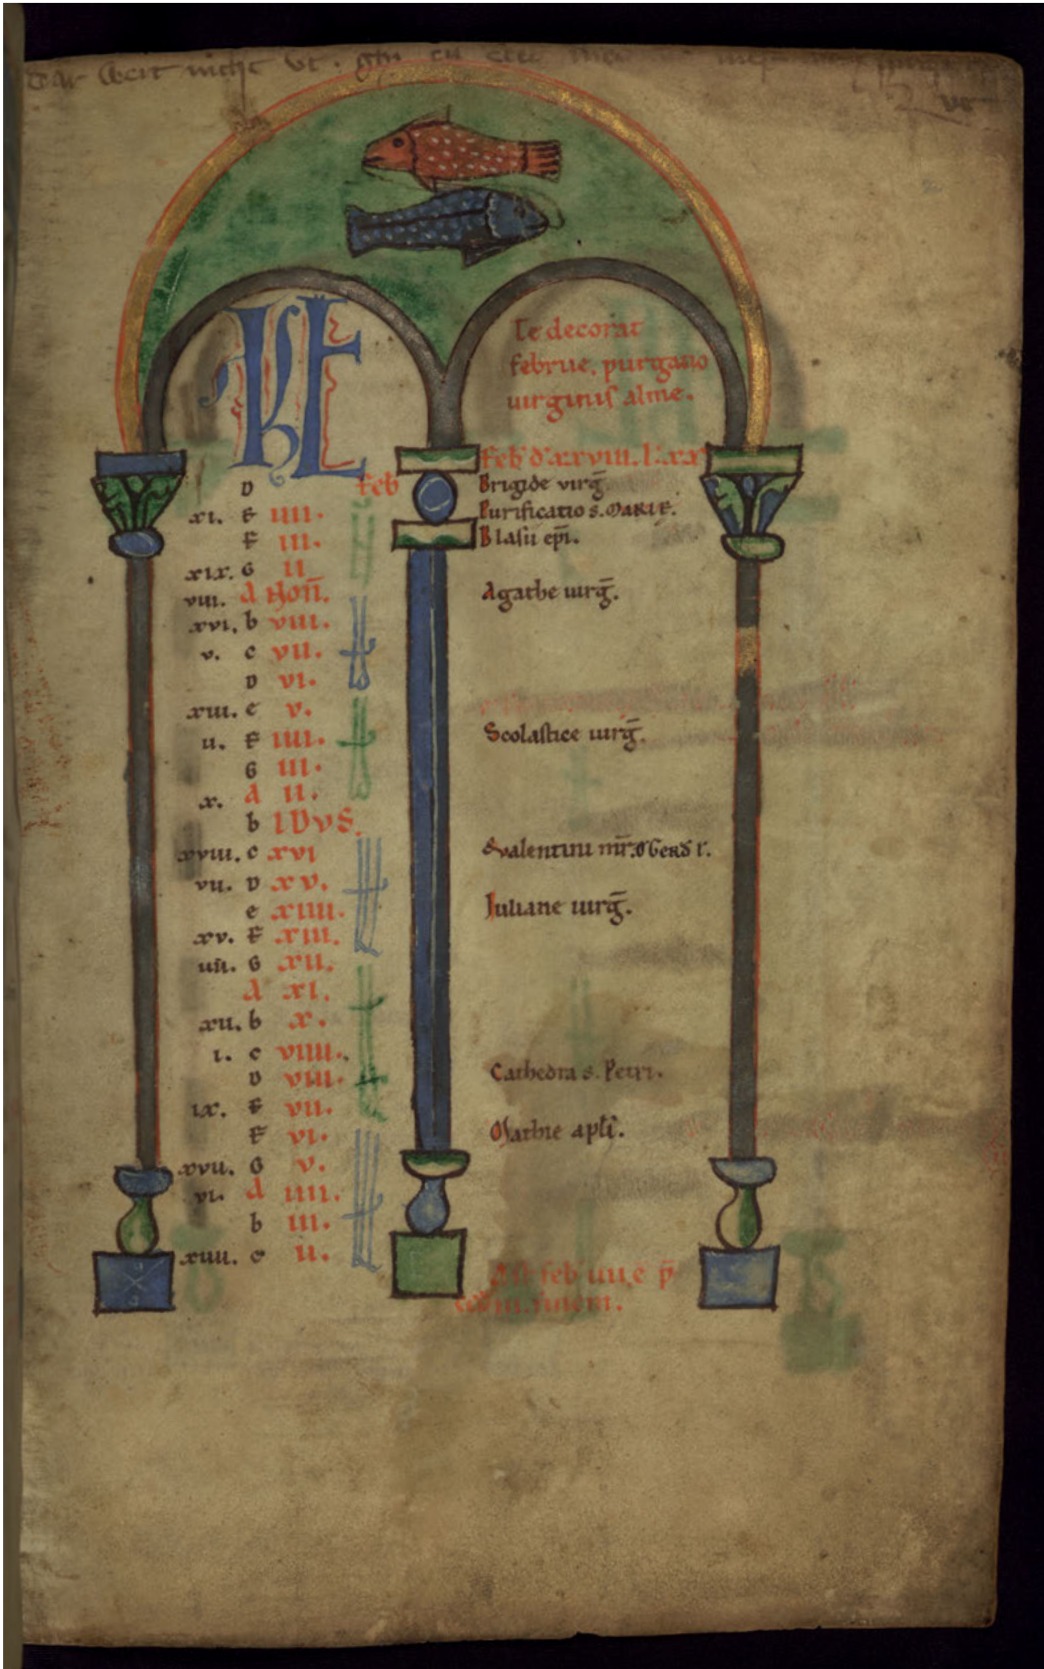 KL
Te decorat
februe. purgatio
uirginis alme.
Feb d' xxviii. l' xx
D Feb Brigide virḡ
xi. E iiii. Purificatio s. MARIE.
F iii. Blasii epī.
xix. G ii
viii. A Noñ. Agathe uirḡ.
xvi. b viii.
v. c vii.
D vi.
xiii. e v.
ii. F iiii. Scolastice uirḡ.
G iii.
x. A ii.
b IDVS.
xviii. c xvi Valentini mr̄.
vii. D xv.
e xiiii. Iuliane uirḡ.
xv. F xiii.
iiii. G xii.
A xi.
xii. b x.
i. c viiii.
D viii. Cathedra s. Petri.
ix. E vii.
F vi. Mathie apłi.
xvii. G v.
vi. A iiii.
b iii.
xiiii. c ii.
feb